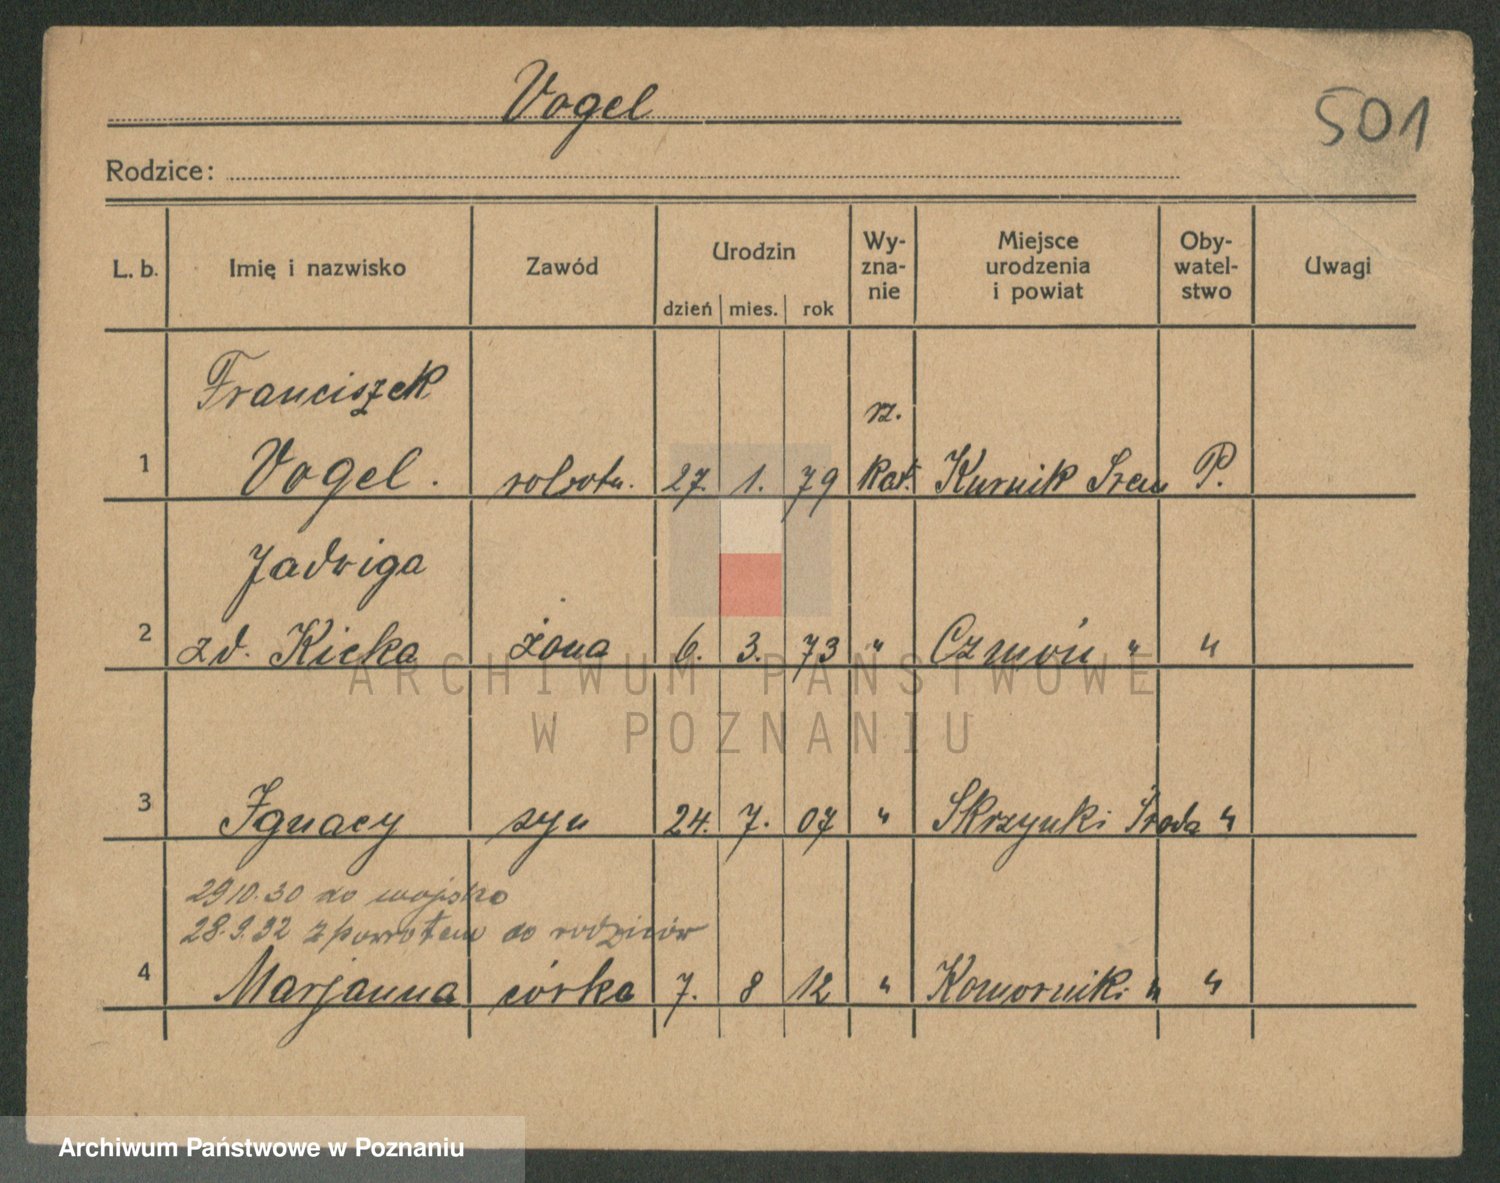 Vogel
501
Rodzice:
L. b.
Imię i nazwisko
Zawód
Urodzin
dzień mies. rok
Wy-
zna-
nie
Miejsce
urodzenia
i powiat
Oby-
watel-
stwo
Uwagi
Franciszek
rz.
1 Vogel. robotn. 27. 1. 79 kat. Kurnik Śrem P.
Jadwiga
2 zd. Kicka żona 6. 3. 73 " Czmoń " "
3 Ignacy syn 24. 7. 07 " Skrzynki Środa "
29 10. 30 do wojsko
28. 9. 32 z powrotem do rodziców
4 Marjanna córka 7. 8 12 " Komorniki " "
ARCHIWUM PAŃSTWOWE
W POZNANIU
Archiwum Państwowe w Poznaniu